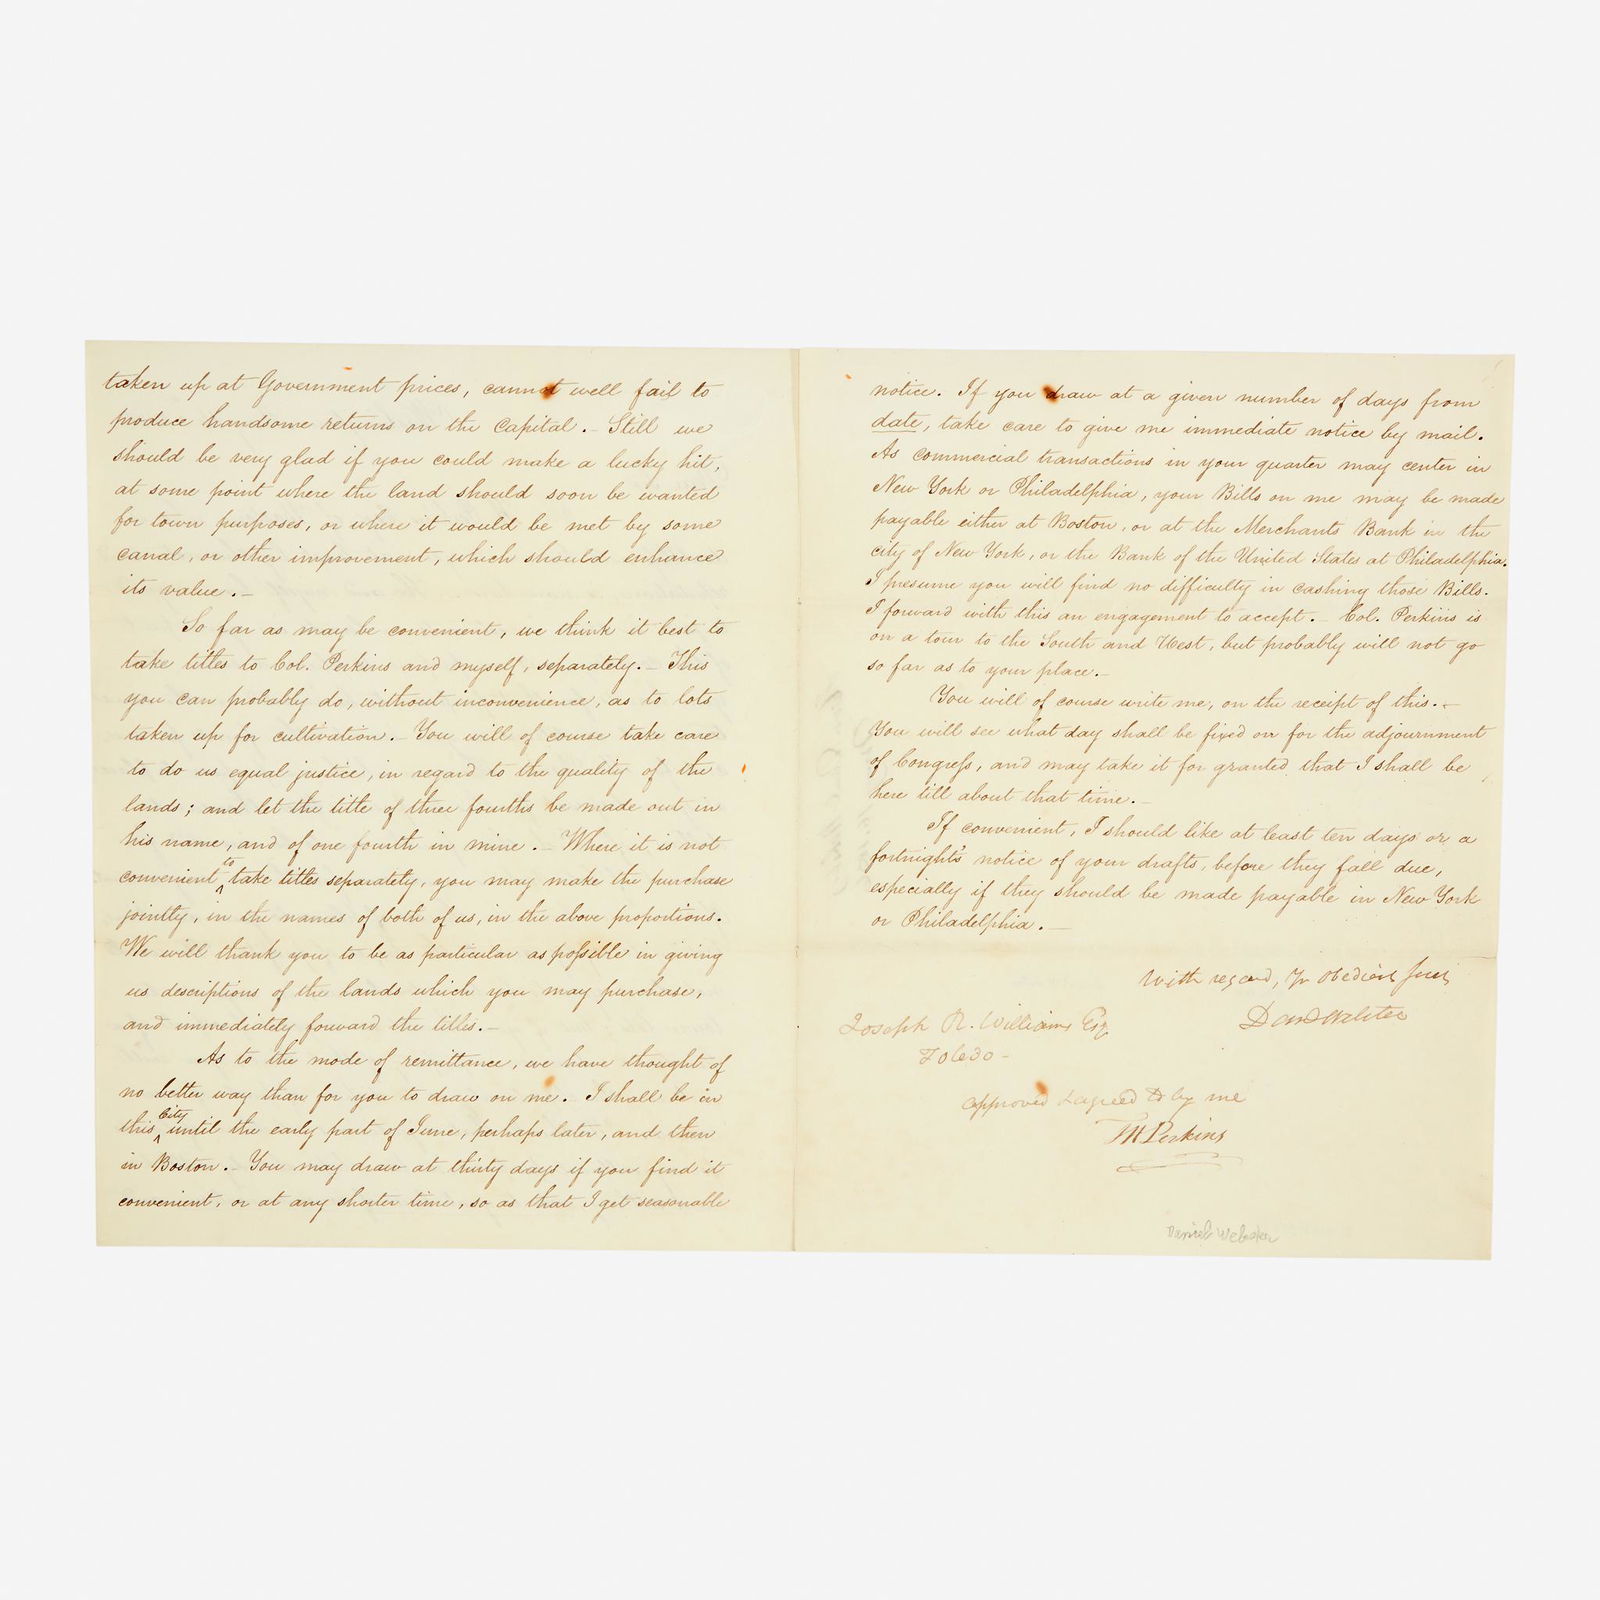 taken up at Government prices, cannot well fail to
produce handsome returns on the Capital. — Still we
should be very glad if you could make a lucky hit,
at some point where the land should soon be wanted
for town purposes, or where it would be met by some
canal, or other improvement, which should enhance
its value. —
So far as may be convenient, we think it best to
take titles to Col. Perkins and myself, separately. — This
you can probably do, without inconvenience, as to lots
taken up for cultivation. — You will of course take care
to do us equal justice, in regard to the quality of the
lands; and let the title of three fourths be made out in
his name, and of one fourth in mine. — Where it is not
convenient ^to take titles separately, you may make the purchase
jointly, in the names of both of us, in the above proportions.
We will thank you to be as particular as possible in giving
us descriptions of the lands which you may purchase,
and immediately forward the titles. —
As to the mode of remittance, we have thought of
no better way than for you to draw on me. I shall be in
this ^City until the early part of June, perhaps later, and then
in Boston. — You may draw at thirty days if you find it
convenient, or at any shorter time, so as that I get seasonable
notice. If you draw at a given number of days from
date, take care to give me immediate notice by mail.
As commercial transactions in your quarter may center in
New York or Philadelphia, your Bills on me may be made
payable either at Boston, or at the Merchants Bank in the
city of New York, or the Bank of the United States at Philadelphia.
I presume you will find no difficulty in cashing those Bills.
I forward with this an engagement to accept. — Col. Perkins is
on a tour to the South and West, but probably will not go
so far as to your place. —
You will of course write me, on the receipt of this. —
You will see what day shall be fixed on for the adjournment
of Congress, and may take it for granted that I shall be
here till about that time. —
If convenient, I should like at least ten days or a
fortnight's notice of your drafts, before they fall due,
especially if they should be made payable in New York
or Philadelphia. —
With regard, Yr obedient Servt
Danl Webster
Joseph R. Williams Esq
Toledo —
approved & agreed to by me
TH Perkins
Daniel Webster